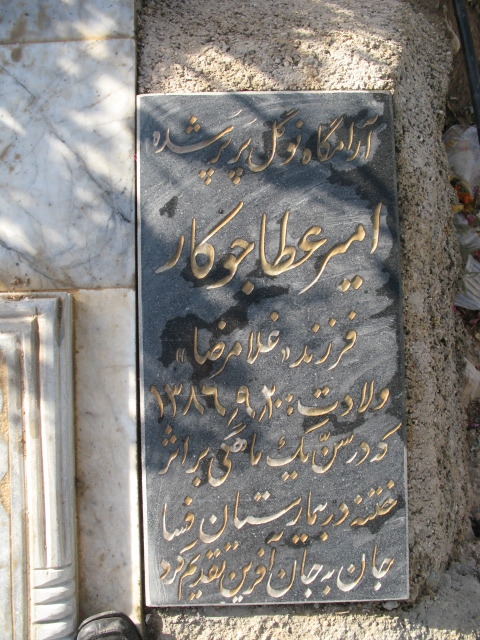 آرامگاه نوگل پرپر شده
امیر عطا جوکار
فرزند «غلامرضا»
ولادت: ۱۳۸۶٫۹٫۲۰
که در سنّ یک ماهگی بر اثر
ختنه در بیمارستان فسا
جان به جان آفرین تقدیم کرد